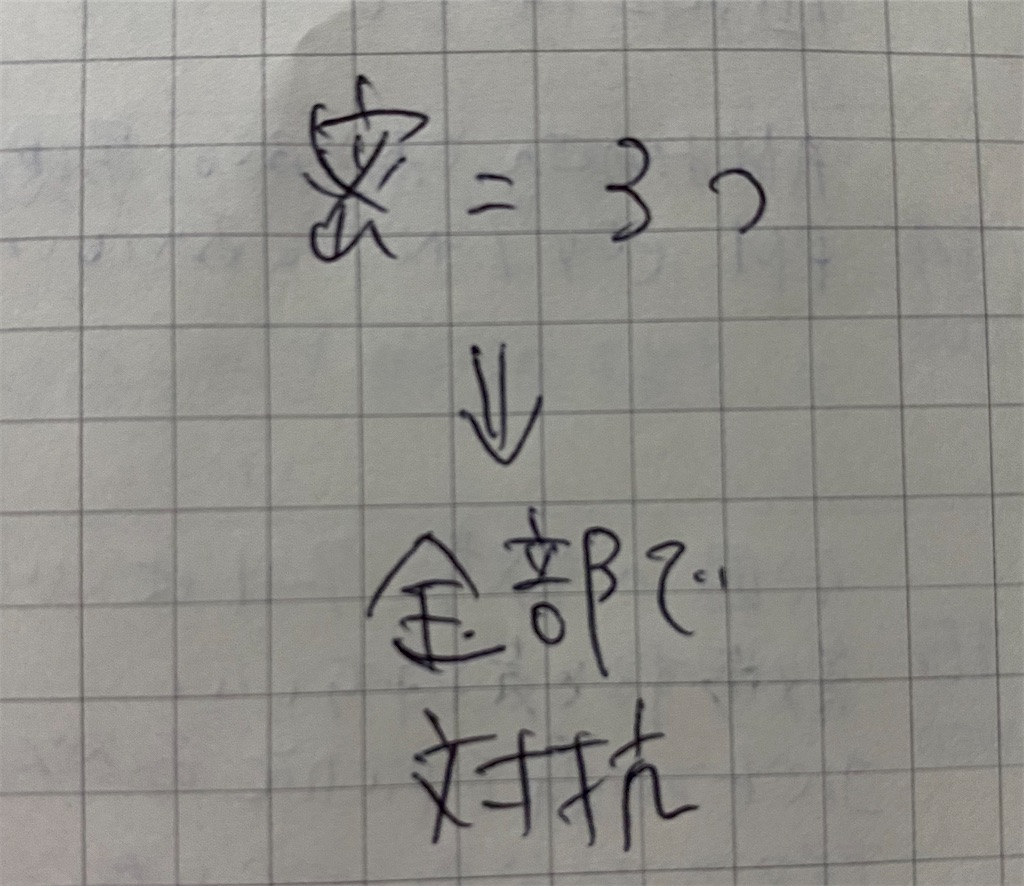 案 = 3つ
⇓
全部で
対抗